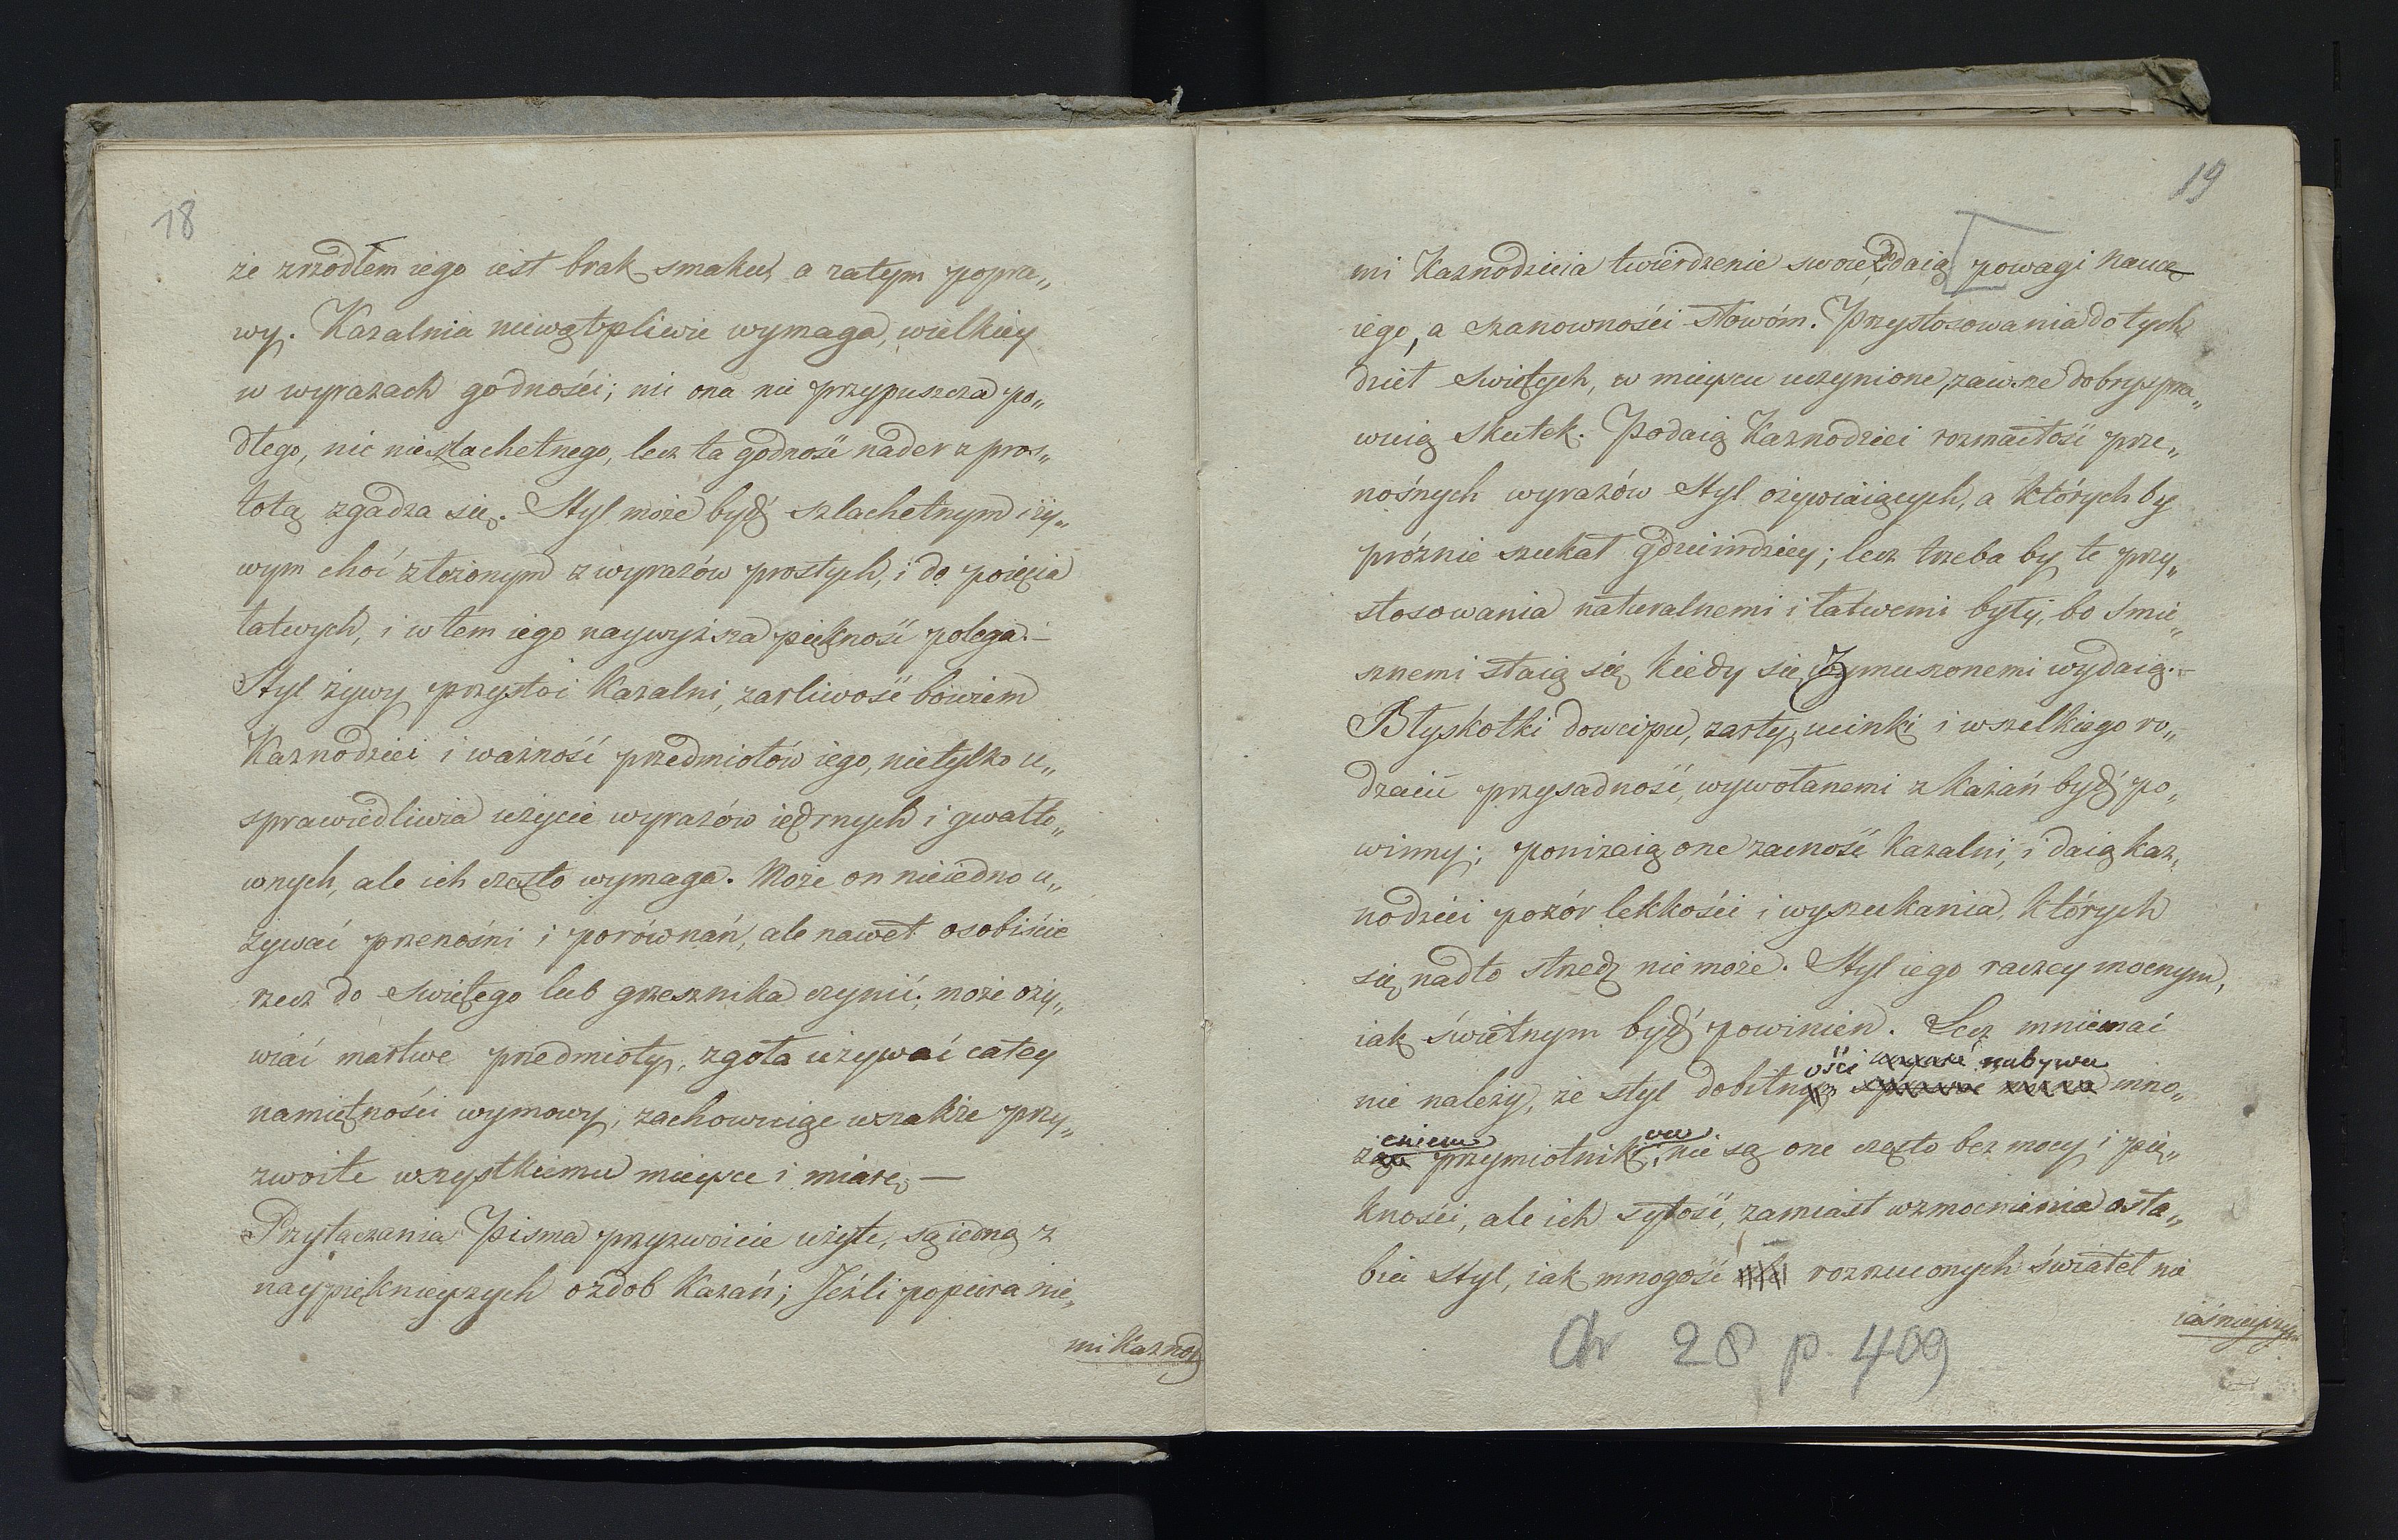 18
że zrzódłem iego iest brak smaku, a zatym popra„
wy. Kazalnia niewątpliwie wymaga, wielkiey
w wyrazach godności; nic ona nie przypuszcza po„
dłego, nic nieszlachetnego, lecz ta godność nader z pros„
totą zgadza się. Styl może bydź szlachetnym i ży„
wym choć złożonym z wyrazów prostych, i do poięcia
łatwych, i w tem iego naywyższa piękność polega.—
Styl żywy przystoi Kazalni, żarliwość bowiem
Kaznodziei i ważność przedmiotów iego, nietylko u„
sprawiedliwia użycie wyrazów iędrnych i gwałto„
wnych, ale ich często wymaga. Może on nieiedno u„
żywać przenośni i porównań, ale nawet osobiście
rzecz do Swiętego lub grzesznika czynić; może oży„
wiać martwe przedmioty, zgoła używać całey
namiętności wymowy, zachowuiąc wszakże przy„
zwoite wszystkiemu mieysce i miarę.—
Przytaczania Pisma przyzwoicie użyte, są iedną z
naypięknieyszych ozdob Kazań; Jeźli popiera nie„
mi Kaznod
19
mi Kaznodzieia twierdzenie swoie, dodaią powagi nauce
iego, a szanowności słowóm. Przystosowania do tych
dzieł Swiętych, w mieyscu uczynione, zawsze dobry spra„
wuią Skutek. Podaią Kaznodziei rozmaitość prze„
nośnych wyrazów Styl ożywiaiących, a których by
próżnie szukał gdzieindziey; lecz trzeba by te przy„
stosowania naturalnemi i łatwemi były, bo smie„
sznemi staią się, kiedy się zymuszonemi wydaią.—
Błyskotki dowcipu, żarty, ucinki i wszelkiego ro„
dzaiu przysadność, wywołanemi z Kazań bydź po„
winny; poniżaią one zacność Kazalni, i daią kaz„
nodziei pozór lekkości i wyszukania, których
się nadto strzedz nie może. Styl iego raczey mocnym,
iak świetnym bydź powinien. Lecz mniemać
ości nabywa
nie należy, że styl dobitn mno„
eniem ów
ż przymiotnik, nie są one często bez mocy i pię„
kności, ale ich sytość, zamiast wzmocnienia osła„
bia Styl, iak mnogość rozrzuconych świateł nie
iaśnieyszy
Ch 28 p 409